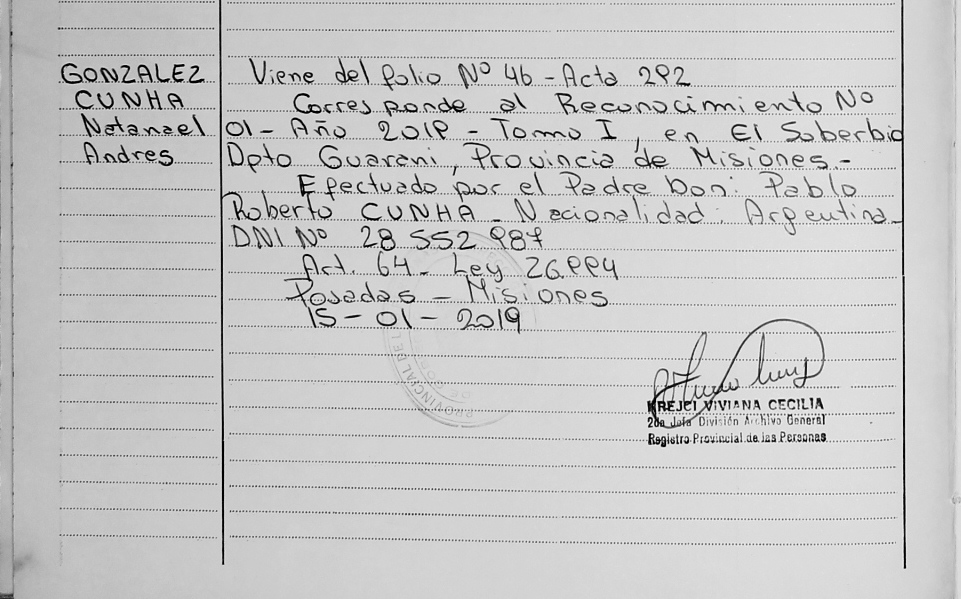 GONZALEZ
CUNHA
Natanael
Andres
Viene del folio Nº 46 - Acta 292
Corresponde al Reconocimiento Nº
01 - Año 2019 - Tomo I, en El Soberbio
Dpto Guarani, Provincia de Misiones.-
Efectuado por el Padre Don: Pablo
Roberto CUNHA - Nacionalidad: Argentina -
DNI Nº 28 552 987
Art. 64 - Ley 26.994
Posadas - Misiones
15 - 01 - 2019
PROVINCIAL DE
KREJCI VIVIANA CECILIA
2da Jefa División Archivo General
Registro Provincial de las Personas